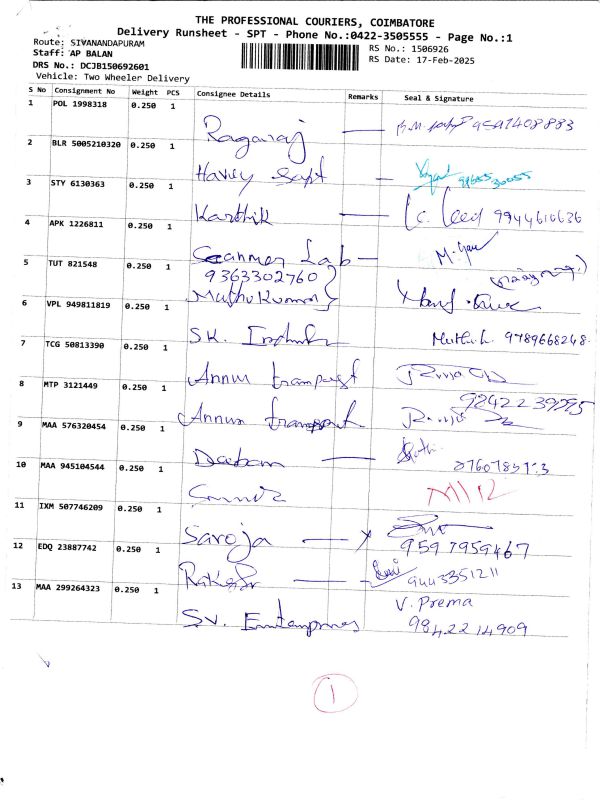 THE PROFESSIONAL COURIERS, COIMBATORE
Delivery Runsheet - SPT - Phone No.:0422-3505555 - Page No.:1
Route: SIVANANDAPURAM
RS No.: 1506926
Staff: AP BALAN
RS Date: 17-Feb-2025
DRS No.: DCJB150692601
Vehicle: Two Wheeler Delivery
S No Consignment No Weight PCS Consignee Details Remarks Seal & Signature
1 POL 1998318 0.250 1
Ragaraj 9597408883
2 BLR 5005210320 0.250 1
3 STY 6130363 0.250 1
Karthik 9944616636
4 APK 1226811 0.250 1
Lab
5 TUT 821548 0.250 1
9363302760
Muthukumar
6 VPL 949811819 0.250 1
SK. 9789668248
7 TCG 50813390 0.250 1
Annur transport
8 MTP 3121449 0.250 1
Annur transport
9 MAA 576320454 0.250 1
10 MAA 945104544 0.250 1
11 IXM 507746209 0.250 1
Saroja 9597959467
12 EDQ 23887742 0.250 1
Rakesh 9443351211
13 MAA 299264323 0.250 1
V. Prema
SV. Enterprises 9842214909
1